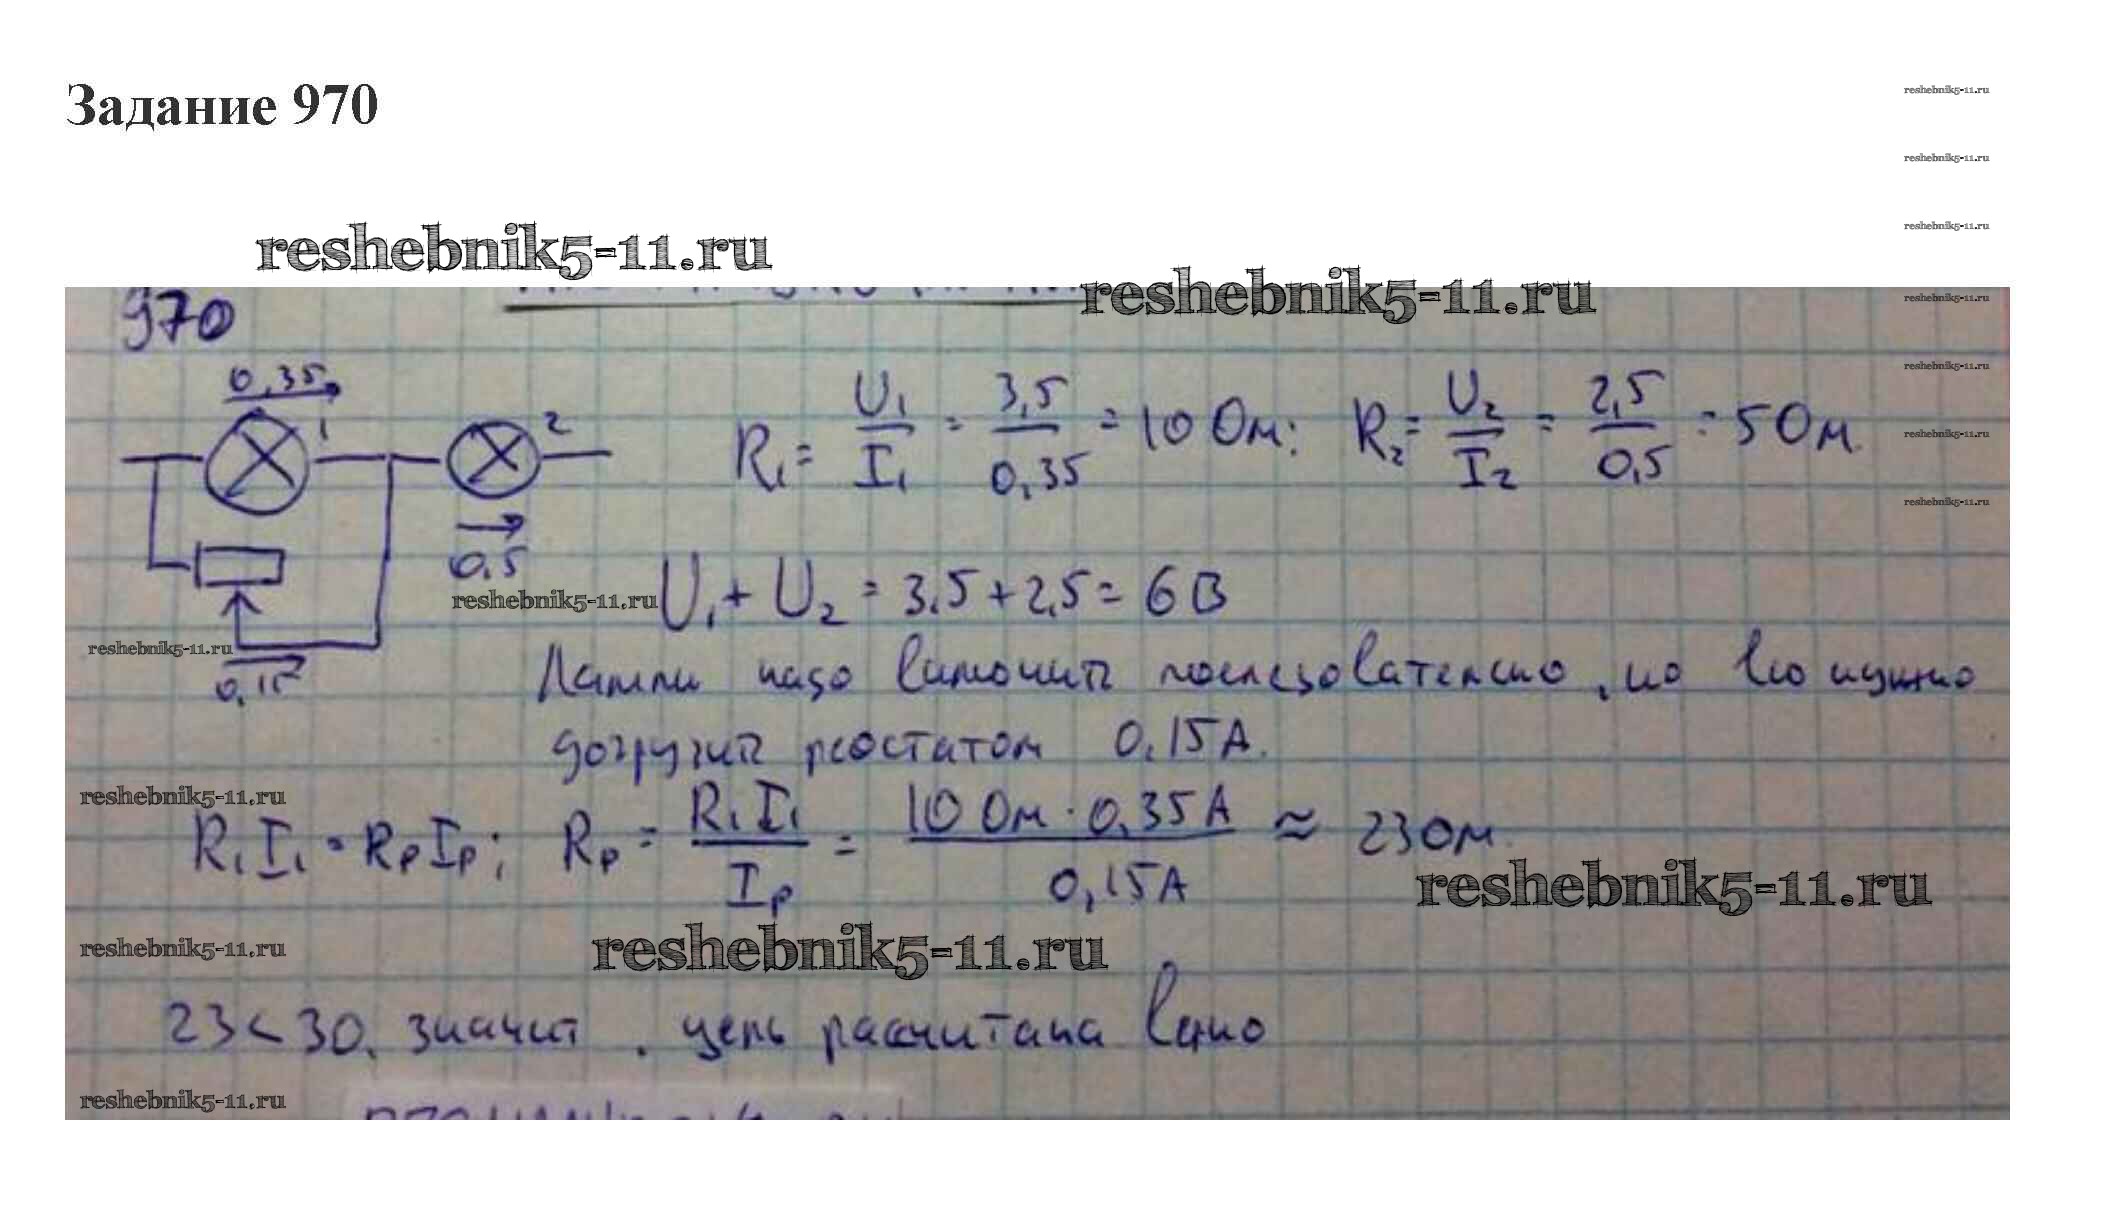 Задание 970
reshebnik5-11.ru
reshebnik5-11.ru
reshebnik5-11.ru
reshebnik5-11.ru
reshebnik5-11.ru
reshebnik5-11.ru
reshebnik5-11.ru
reshebnik5-11.ru
reshebnik5-11.ru
970
0,35
1
2
R₁ = U₁/I₁ = 3,5/0,35 = 10 Ом; R₂ = U₂/I₂ = 2,5/0,5 = 5 Ом.
0,5
reshebnik5-11.ru
U₁ + U₂ = 3,5 + 2,5 = 6 В
reshebnik5-11.ru
0,15
Лампы надо включить последовательно, но нужно
догрузить реостатом 0,15 А.
reshebnik5-11.ru
R₁I₁ = RₚIₚ; Rₚ = R₁I₁/Iₚ = 10 Ом · 0,35 А/0,15 А ≈ 23 Ом.
reshebnik5-11.ru
reshebnik5-11.ru
reshebnik5-11.ru
23 < 30, значит, цепь рассчитана верно
reshebnik5-11.ru